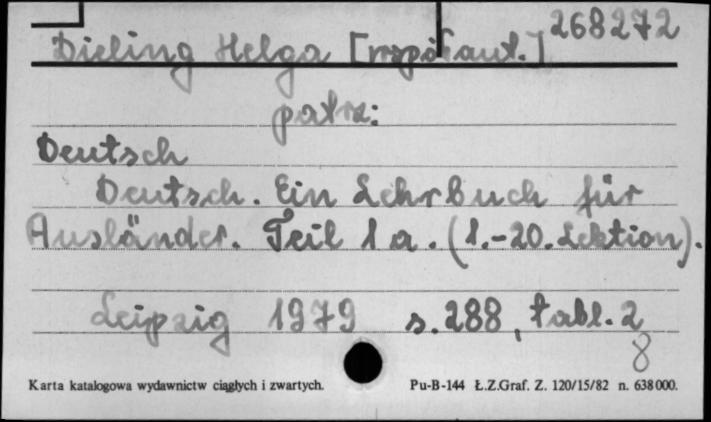 268272
Dieling Helga [współaut.]
patrz:
Deutsch
Deutsch. Ein Lehrbuch für
Ausländer. Teil 1a. (1.-20. Lektion).
Leipzig 1979 s. 288, tabl. 2
8
Karta katalogowa wydawnictw ciągłych i zwartych. Pu-B-144 Ł.Z.Graf. Z. 120/15/82 n. 638000.